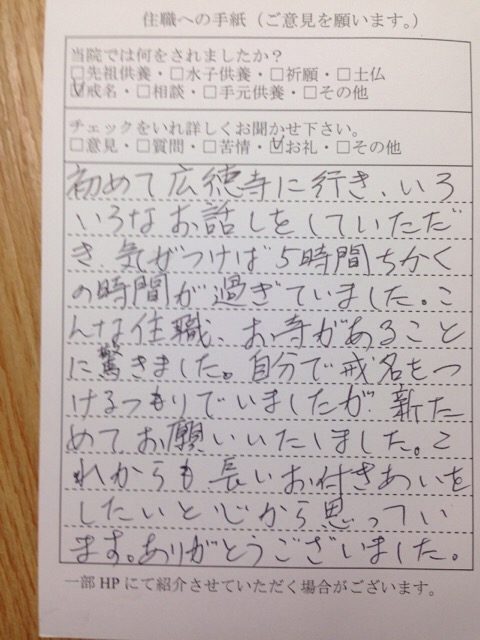 住職への手紙（ご意見を願います。）
当院では何をされましたか？
□先祖供養・□水子供養・□祈願・□土仏
☑戒名・□相談・□手元供養・□その他
チェックをいれ詳しくお聞かせ下さい。
□意見・□質問・□苦情・☑お礼・□その他
初めて広徳寺に行き、いろ
いろなお話しをしていただ
き気がつけば5時間ちかく
の時間が過ぎていました。こ
んな住職、お寺があること
に驚きました。自分で戒名をつ
けるつもりでいましたが、新た
めてお願いいたしました。こ
れからも長いお付きあいを
したいと心から思ってい
ます。ありがとうございました。
一部HPにて紹介させていただく場合がございます。